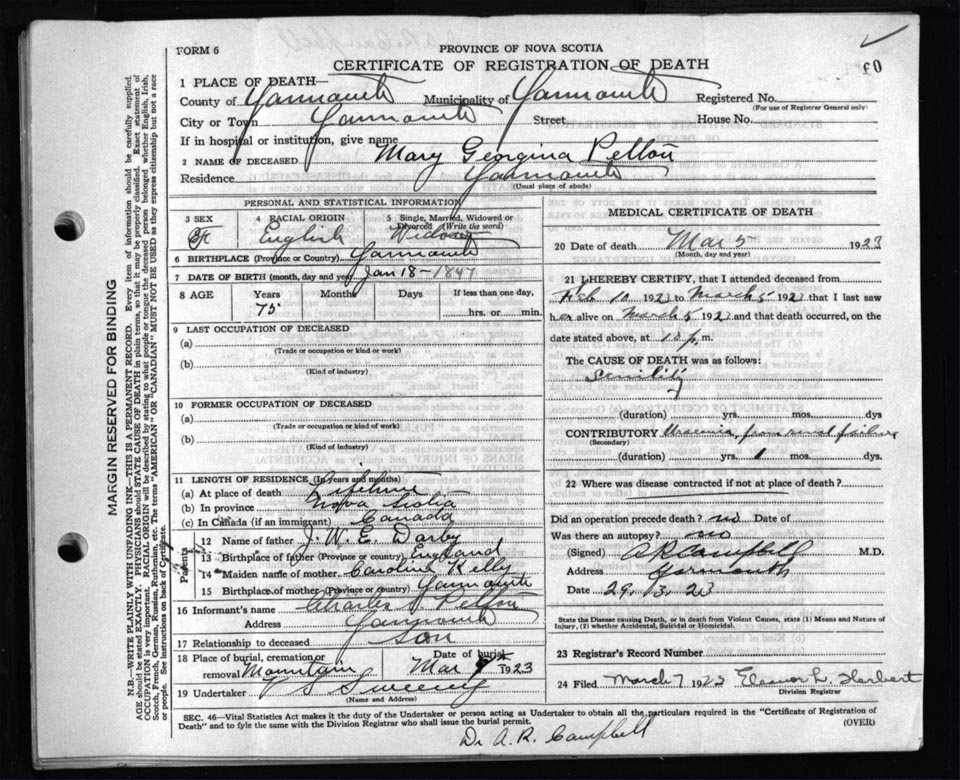 FORM 6
PROVINCE OF NOVA SCOTIA
CERTIFICATE OF REGISTRATION OF DEATH
1 PLACE OF DEATH—
County of Yarmouth Municipality of Yarmouth Registered No.
(For use of Registrar General only)
City or Town Yarmouth Street House No.
If in hospital or institution, give name
2 NAME OF DECEASED Mary Georgina Pelton
Residence Yarmouth
(Usual place of abode)
PERSONAL AND STATISTICAL INFORMATION
3 SEX 4 RACIAL ORIGIN 5 Single, Married, Widowed or Divorced (Write the word)
F English Widow
6 BIRTHPLACE (Province or Country) Yarmouth
7 DATE OF BIRTH (month, day and year) Jan 18-1847
8 AGE Years Months Days If less than one day,
75 hrs. or min.
9 LAST OCCUPATION OF DECEASED
(a)
(Trade or occupation or kind or work)
(b)
(Kind of industry)
10 FORMER OCCUPATION OF DECEASED
(a)
(Trade or occupation or kind of work)
(b)
(Kind of industry)
11 LENGTH OF RESIDENCE (in years and months)
(a) At place of death Lifetime
(b) In province Nova Scotia
(c) In Canada (if an immigrant) Canada
Parents
12 Name of father J. W. E. Darby
13 Birthplace of father (Province or country) England
14 Maiden name of mother Caroline Kelly
15 Birthplace of mother (Province or country) Yarmouth
16 Informant's name Charles Pelton
Address Yarmouth
17 Relationship to deceased Son
18 Place of burial, cremation or removal Mountain Date of burial Mar 9 1923
19 Undertaker V S Sweeney
(Name and Address)
MEDICAL CERTIFICATE OF DEATH
20 Date of death Mar 5 1923
(Month, day and year)
21 I HEREBY CERTIFY, that I attended deceased from
Feb 10 1923 to March 5 1923 that I last saw
her alive on March 5 1923 and that death occurred, on the
date stated above, at p.m.
The CAUSE OF DEATH was as follows:
Senility
(duration) yrs. mos. dys
CONTRIBUTORY Uraemia, from renal failure
(Secondary)
(duration) yrs. 1 mos. dys.
22 Where was disease contracted if not at place of death?
Did an operation precede death? no Date of
Was there an autopsy? no
(Signed) A R Campbell M.D.
Address Yarmouth
Date 29. 3. 23
State the Disease causing Death, or in death from Violent Causes, state (1) Means and Nature of Injury, (2) whether Accidental, Suicidal or Homicidal.
23 Registrar's Record Number
24 Filed March 7 1923 Eleanor L. Herbert
Division Registrar
SEC. 46—Vital Statistics Act makes it the duty of the Undertaker or person acting as Undertaker to obtain all the particulars required in the "Certificate of Registration of
Death" and to fyle the same with the Division Registrar who shall issue the burial permit. (OVER)
Dr A. R. Campbell
MARGIN RESERVED FOR BINDING
N.B.—WRITE PLAINLY WITH UNFADING INK—THIS IS A PERMANENT RECORD. Every item of information should be carefully supplied.
AGE should be stated EXACTLY. PHYSICIANS should STATE CAUSE OF DEATH in plain terms, so that it may be properly classified. Exact statement of
OCCUPATION is very important. RACIAL ORIGIN will be described by stating to what people or tongue the deceased person belonged whether English, Irish,
Scotch, French, German, Russian, Ruthenian, etc. The terms "AMERICAN" OR "CANADIAN" MUST NOT BE USED as they express citizenship but not a race
or people. See instructions on back of Certificate.